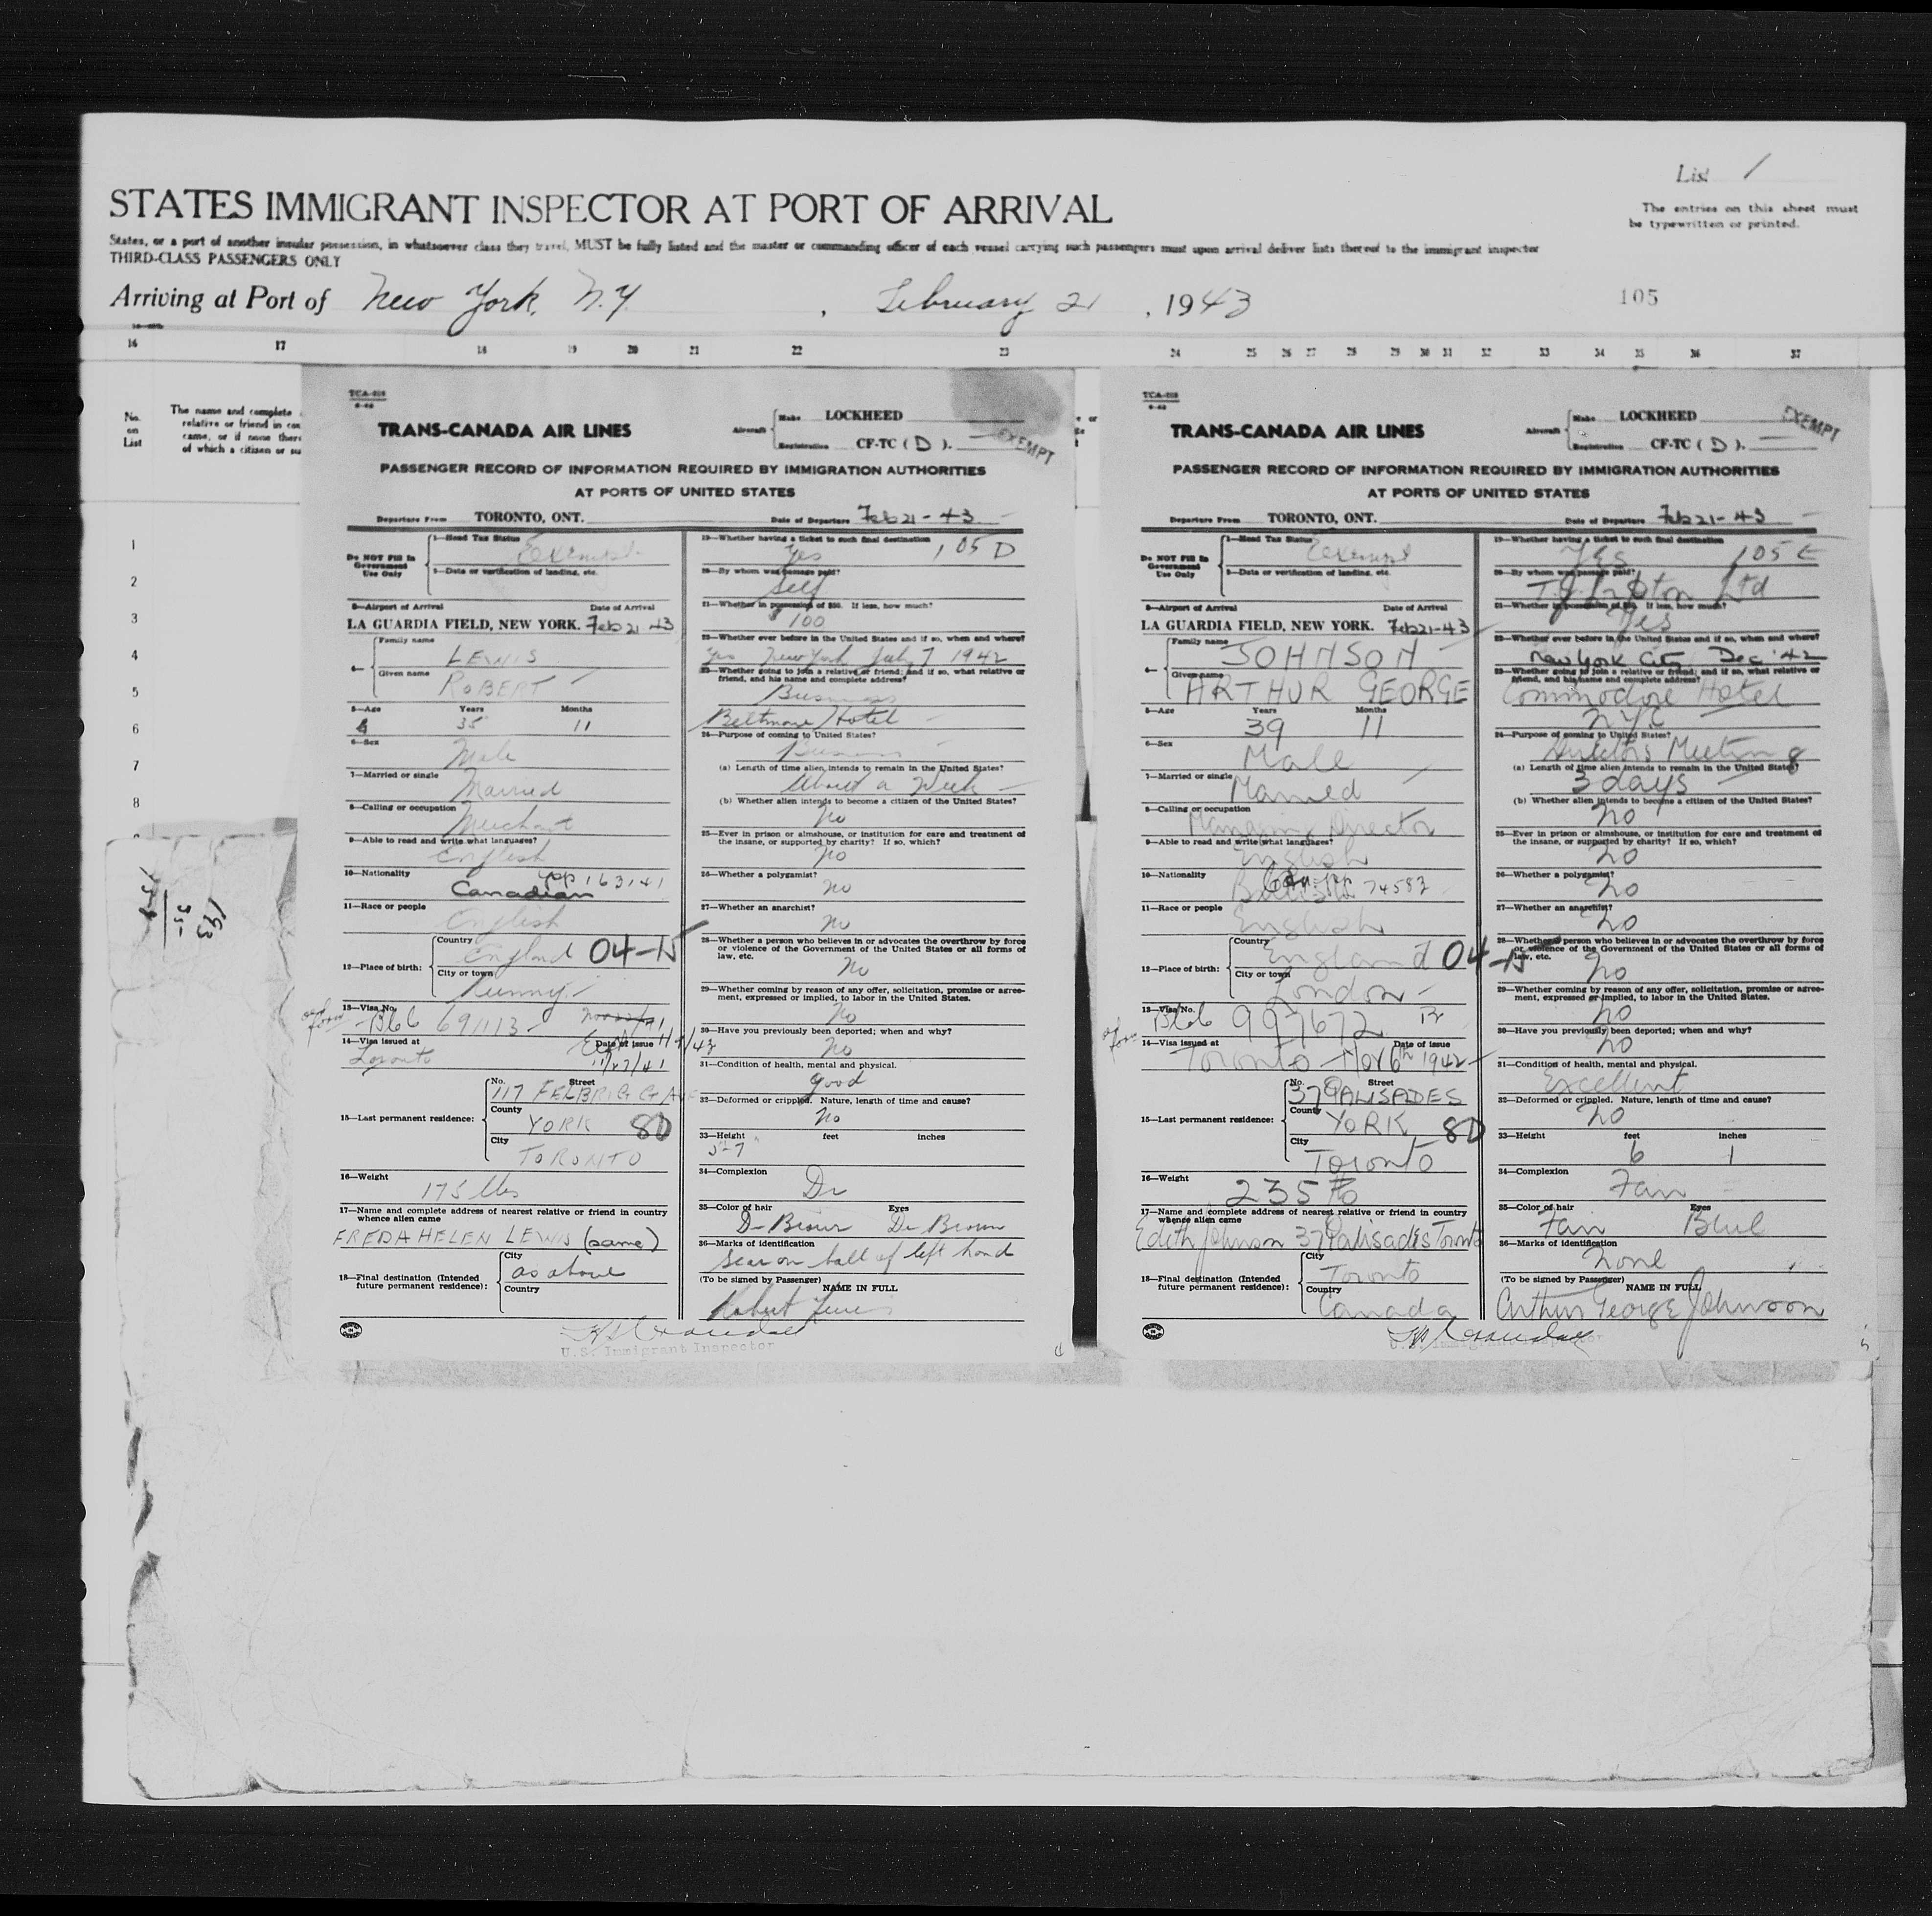 List 1
STATES IMMIGRANT INSPECTOR AT PORT OF ARRIVAL
The entries on this sheet must
be typewritten or printed.
States, or a port of another insular possession, in whatsoever class they travel, MUST be fully listed and the master or commanding officer of each vessel carrying such passengers must upon arrival deliver lists thereof to the immigrant inspector
THIRD-CLASS PASSENGERS ONLY
Arriving at Port of New York, N.Y. , February 21 , 1943
105
16 17 18 19 20 21 22 23 24 25 26 27 28 29 30 31 32 33 34 35 36 37
No.
on
List
The name and complete
relative or friend in cou
came, or if none there
of which a citizen or su
1
2
3
4
5
6
7
8
TCA-
TRANS-CANADA AIR LINES
Aircraft Make LOCKHEED
Registration CF-TC ( D ).
EXEMPT
PASSENGER RECORD OF INFORMATION REQUIRED BY IMMIGRATION AUTHORITIES
AT PORTS OF UNITED STATES
Departure From TORONTO, ONT. Date of Departure Feb 21-43
Do NOT Fill In
Government
Use Only
1—Head Tax Status Exempt
2—Data or verification of landing, etc.
3—Airport of Arrival Date of Arrival
LA GUARDIA FIELD, NEW YORK. Feb 21 43
4— Family name LEWIS
Given name ROBERT
5—Age Years Months
35 11
6—Sex Male
7—Married or single Married
8—Calling or occupation Merchant
9—Able to read and write what languages? English
10—Nationality Canadian
11—Race or people English
12—Place of birth: Country England 04-15
City or town
13—Visa No. B66 691113
14—Visa issued at Date of issue
Toronto 11/27/41
15—Last permanent residence: No. Street 117 FELBRIGG AVE
County YORK 8D
City TORONTO
16—Weight 175 lbs
17—Name and complete address of nearest relative or friend in country
whence alien came
FREDA HELEN LEWIS (same)
18—Final destination (Intended
future permanent residence): City as above
Country
19—Whether having a ticket to such final destination
Yes 105 D
20—By whom was passage paid?
Self
21—Whether in possession of $50. If less, how much?
100
22—Whether ever before in the United States and if so, when and where?
yes New York July 7 1942
23—Whether going to join a relative or friend; and if so, what relative or
friend, and his name and complete address?
Business
Beltmore Hotel
24—Purpose of coming to United States?
Business
(a) Length of time alien intends to remain in the United States?
About a Week
(b) Whether alien intends to become a citizen of the United States?
No
25—Ever in prison or almshouse, or institution for care and treatment of
the insane, or supported by charity? If so, which?
No
26—Whether a polygamist?
No
27—Whether an anarchist?
No
28—Whether a person who believes in or advocates the overthrow by force
or violence of the Government of the United States or all forms of
law, etc.
No
29—Whether coming by reason of any offer, solicitation, promise or agree-
ment, expressed or implied, to labor in the United States.
No
30—Have you previously been deported; when and why?
No
31—Condition of health, mental and physical.
Good
32—Deformed or crippled. Nature, length of time and cause?
No
33—Height feet inches
5-7
34—Complexion
Dr
35—Color of hair Eyes
D-Brown Dr Brown
36—Marks of identification
Scar on ball of left hand
(To be signed by Passenger) NAME IN FULL
Robert Lewis
U.S. Immigrant Inspector
TCA-
TRANS-CANADA AIR LINES
Aircraft Make LOCKHEED
Registration CF-TC ( D ).
EXEMPT
PASSENGER RECORD OF INFORMATION REQUIRED BY IMMIGRATION AUTHORITIES
AT PORTS OF UNITED STATES
Departure From TORONTO, ONT. Date of Departure Feb 21-43
Do NOT Fill In
Government
Use Only
1—Head Tax Status Exempt
2—Data or verification of landing, etc.
3—Airport of Arrival Date of Arrival
LA GUARDIA FIELD, NEW YORK. Feb 21-43
4— Family name JOHNSON
Given name ARTHUR GEORGE
5—Age Years Months
39 11
6—Sex Male
7—Married or single Married
8—Calling or occupation Managing Director
9—Able to read and write what languages? English
10—Nationality 74583
11—Race or people English
12—Place of birth: Country England 04-15
City or town London
13—Visa No. B66 997672
14—Visa issued at Date of issue
Toronto Nov 6th 1942
15—Last permanent residence: No. Street 37 PALISADES
County YORK 8D
City Toronto
16—Weight 235
17—Name and complete address of nearest relative or friend in country
whence alien came
Edith Johnson 37 Palisades Toronto
18—Final destination (Intended
future permanent residence): City Toronto
Country Canada
19—Whether having a ticket to such final destination
Yes 105 E
20—By whom was passage paid?
T.J. Lipton Ltd
21—Whether in possession of $50. If less, how much?
Yes
22—Whether ever before in the United States and if so, when and where?
New York City Dec '42
23—Whether going to join a relative or friend; and if so, what relative or
friend, and his name and complete address?
Commodore Hotel
NYC
24—Purpose of coming to United States?
Directors Meeting
(a) Length of time alien intends to remain in the United States?
3 days
(b) Whether alien intends to become a citizen of the United States?
No
25—Ever in prison or almshouse, or institution for care and treatment of
the insane, or supported by charity? If so, which?
No
26—Whether a polygamist?
No
27—Whether an anarchist?
No
28—Whether a person who believes in or advocates the overthrow by force
or violence of the Government of the United States or all forms of
law, etc.
No
29—Whether coming by reason of any offer, solicitation, promise or agree-
ment, expressed or implied, to labor in the United States.
No
30—Have you previously been deported; when and why?
No
31—Condition of health, mental and physical.
Excellent
32—Deformed or crippled. Nature, length of time and cause?
No
33—Height feet inches
6 1
34—Complexion
Fair
35—Color of hair Eyes
Fair Blue
36—Marks of identification
None
(To be signed by Passenger) NAME IN FULL
Arthur George Johnson
U.S. Immigrant Inspector